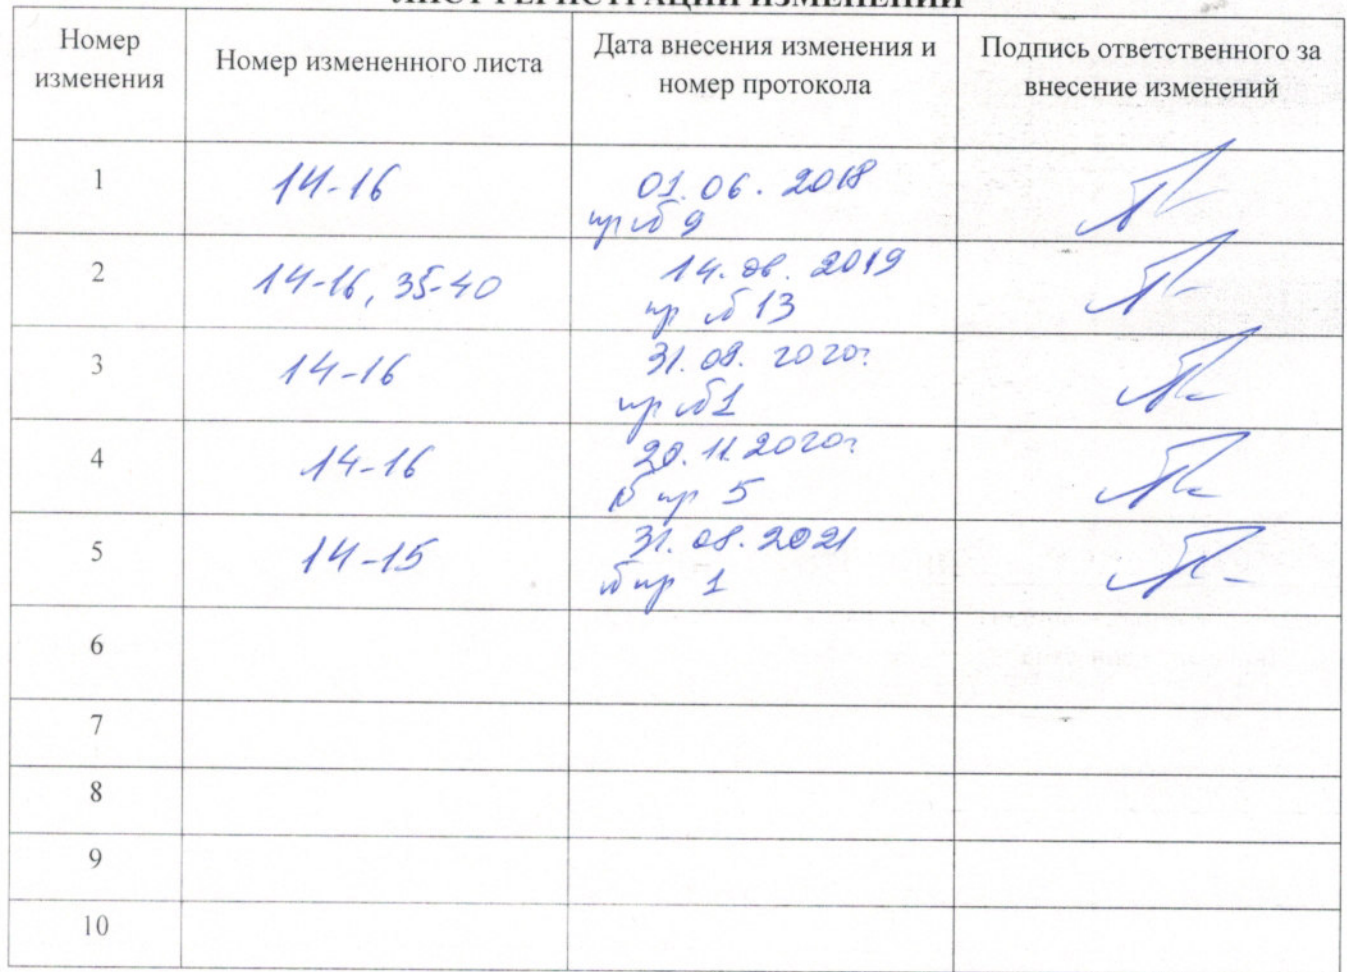 ЛИСТ РЕГИСТРАЦИИ ИЗМЕНЕНИЙ
Номер изменения
Номер измененного листа
Дата внесения изменения и номер протокола
Подпись ответственного за внесение изменений
1
14-16
01.06.2018
пр № 9
2
14-16, 35-40
14.06.2019
пр № 13
3
14-16
31.08.2020г
пр №1
4
14-16
20.11.2020г
№ пр 5
5
14-15
31.08.2021
№ пр 1
6
7
8
9
10